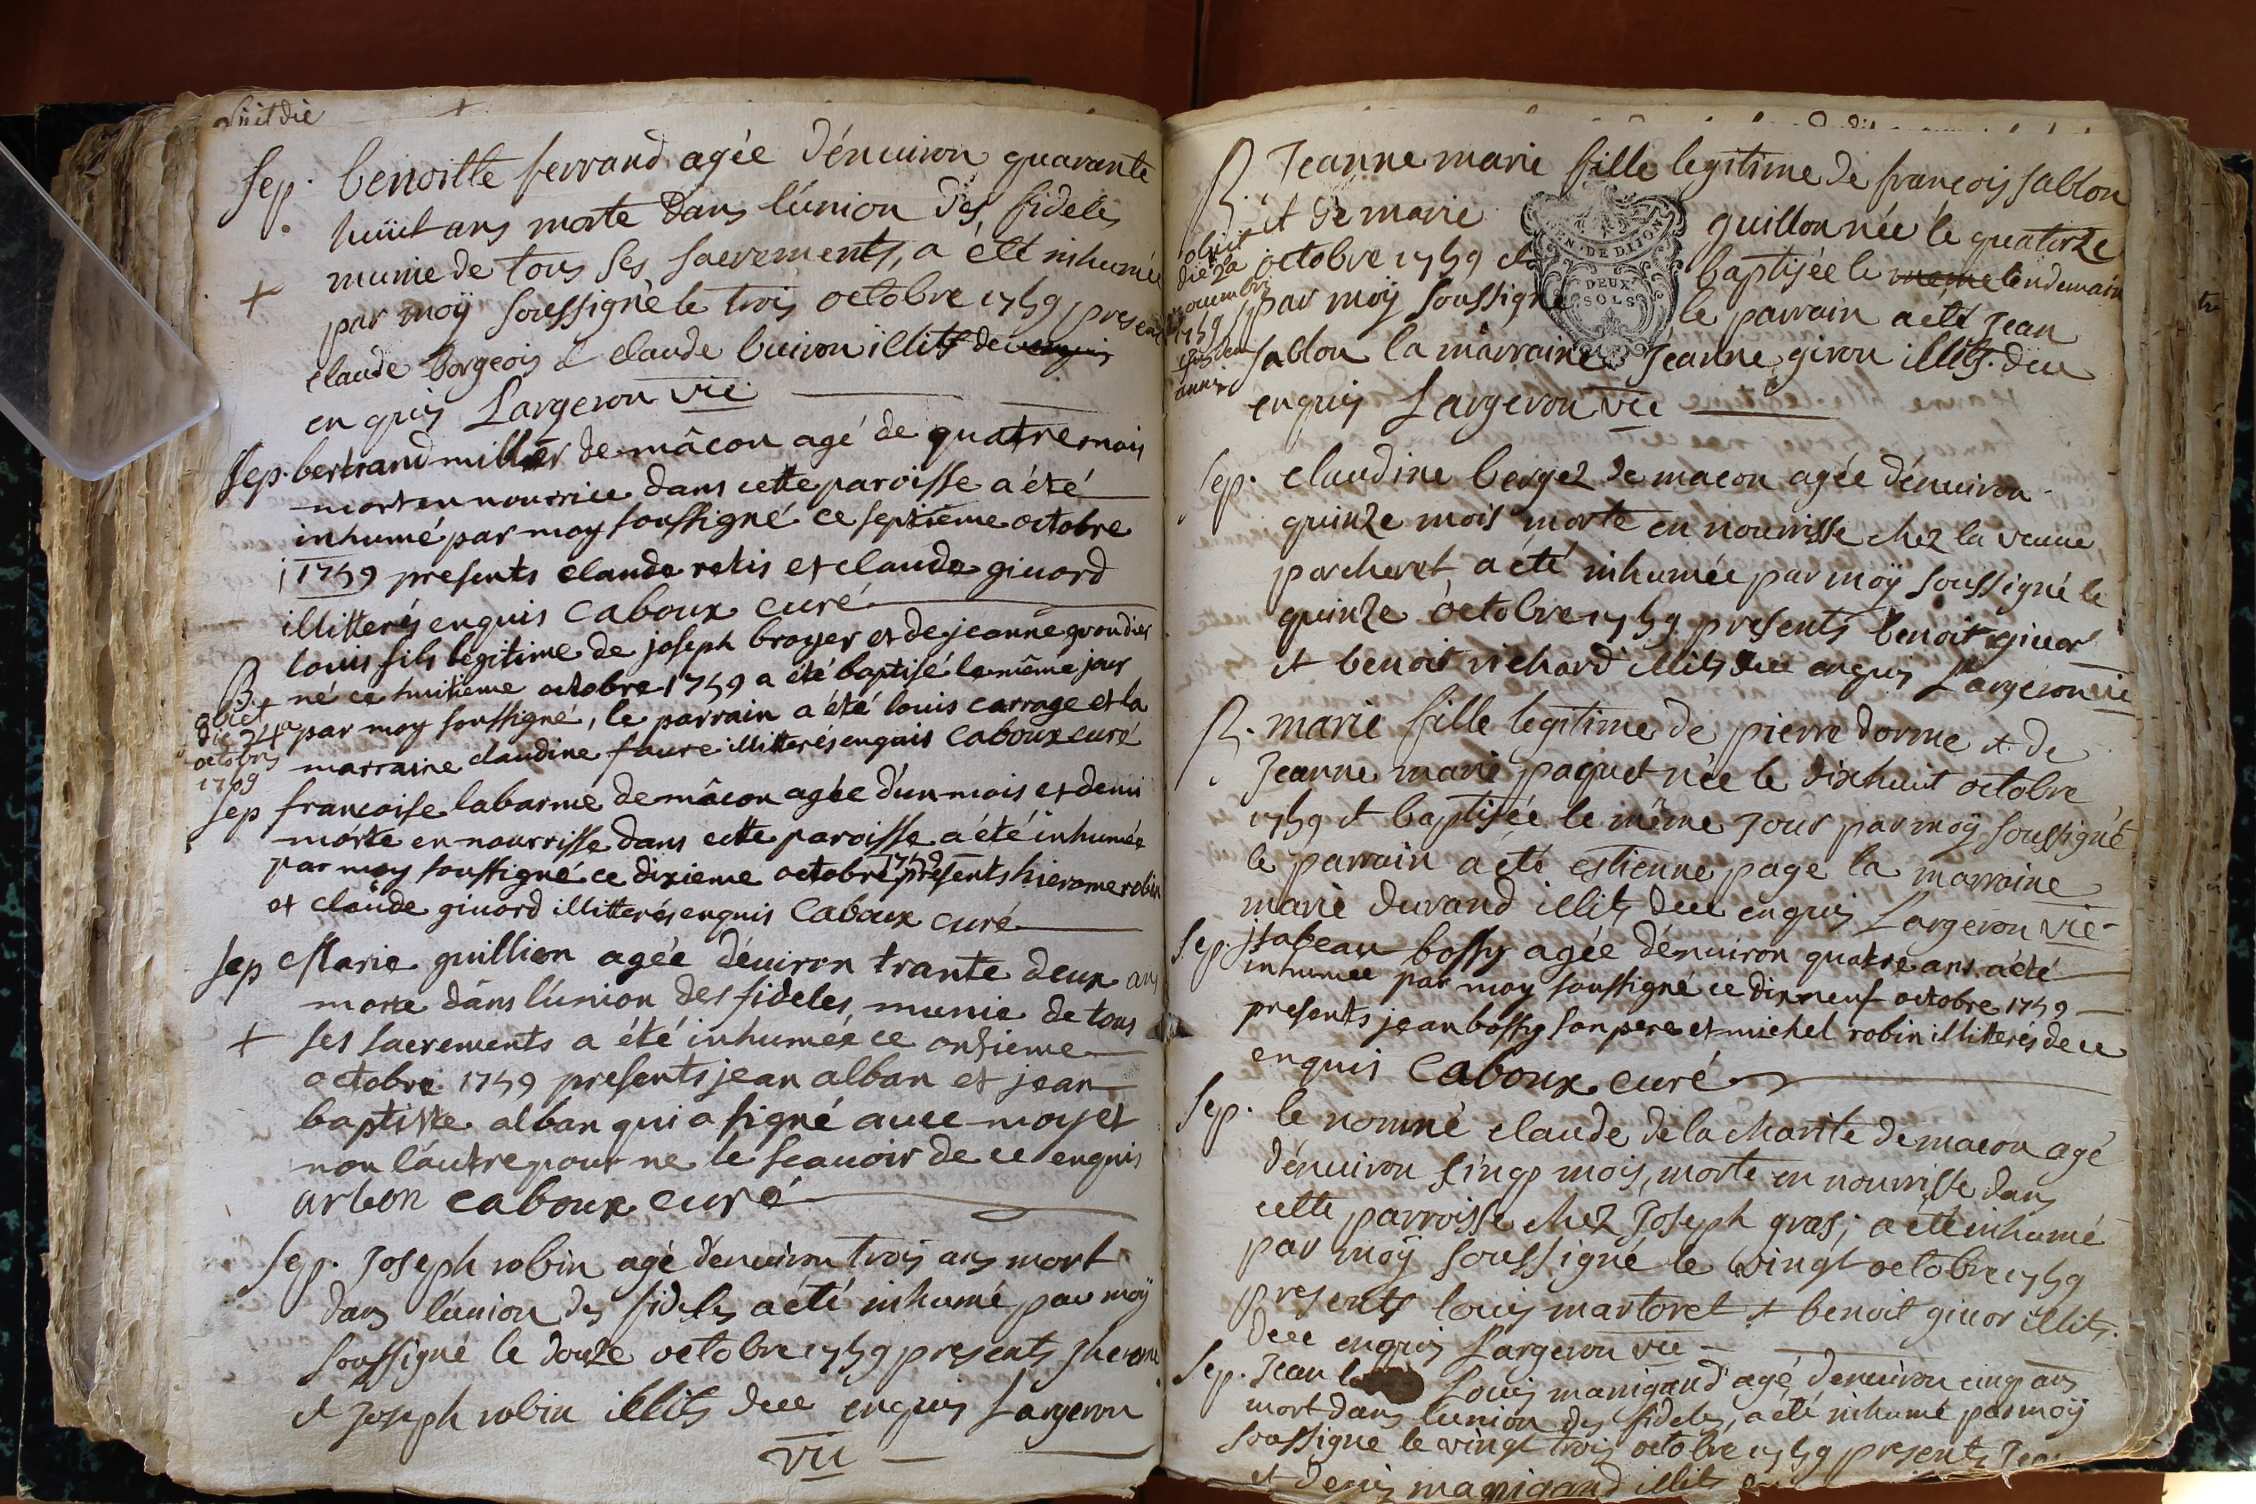 sep. benoitte ferrand agée dénuiron quarante
huiit ans morte dans lúnion des fideles
munie de tous ses sacrements, a été inhumée
+ par moÿ soussigné le trois octobre 1759 presents
claude borgeois & claude buiron illits de
en quis Largeron vic.
sep. bertrand millier de mâcon agé de quatre mois
mort en nourrice dans cette paroisse a été
inhumé par moy soussigné ce septieme octobre
1759 presents claude retis et claude giuord
illitterés enquis Caboux curé
louis fils legitime de joseph broyer et de jeanne grondier
B. né ce huitieme octobre 1759 a été baptisé le même jour
obiit die 24a octobris 1759
par moy soussigné, le parrain a été louis carrage et la
marraine claudine faure illitterés enquis Caboux curé
sep francoise labarme de mâcon agée d'un mois et demi
morte en nourrisse dans cette paroisse a été inhumée
par moy soussigné ce dixieme octobre 1759 presents hierome robin
et claude giuord illitterés enquis Caboux curé
sep Marie guillion agée déuiron trante deux ans
morte dans lúnion des fideles, munie de tous
+ ses sacrements a été inhumée ce onzieme
octobre 1759 presents jean alban et jean
baptiste alban qui a signé auec moy et
non l'autre pour ne le scauoir de ce enquis
arbon Caboux curé
sep. Joseph robin agé dénuiron trois ans mort
dans lúnion des fideles a été inhumé par moÿ
soussigné le douze octobre 1759 presents
et Joseph robin illits dece enquis Largeron
vic
B. Jeanne marie fille legitime de françois sablon
et de marie guillon née le quatorze
octobre 1759 & baptisée le meme lendemain
obiit die 2a nouembris 1759 ejusdem anni
par moÿ soussigné le parrain a été Jean
sablon la marraine Jeanne giron illits. dece
enquis Largeron vic
GEN. DE DIJON
DEUX
SOLS
sep. claudine bergez de macon agée dénuiron
quinze mois morte en nourrisse chez la veuue
porcheret a été inhumée par moÿ soussigné le
quinze octobre 1759 presents benoit giuor
et benoit richard illits dece enquis Largeron vic
B. marie fille legitime de pierre dorme & de
Jeanne marie paquet née le dixhuit octobre
1759 et baptisée le même jour par moÿ soussigné
le parrain a été estienne page la marraine
marie durand illits dece enquis Largeron vic
sep. jsabeau bossy agée dénuiron quatre ans a été
inhumée par moy soussigné ce dixneuf octobre 1759
presents jean bossy son pere et michel robin illiterés de ce
enquis Caboux curé
sep. le nommé claude de la charité de macon agé
dénuiron sinqp mois, morte en nourrisse dans
cette parroisse chez Joseph gras; a été inhumé
par moÿ soussigné le vingt octobre 1759
presents louis martoret & benoit giuor illits.
dece enquis Largeron vic
sep. Jean Louis manigand agé dénuiron cinq ans
mort dans lunion des fideles, a été inhumé par moÿ
soussigné le vingt trois octobre 1759 presents
et denis manigand illits